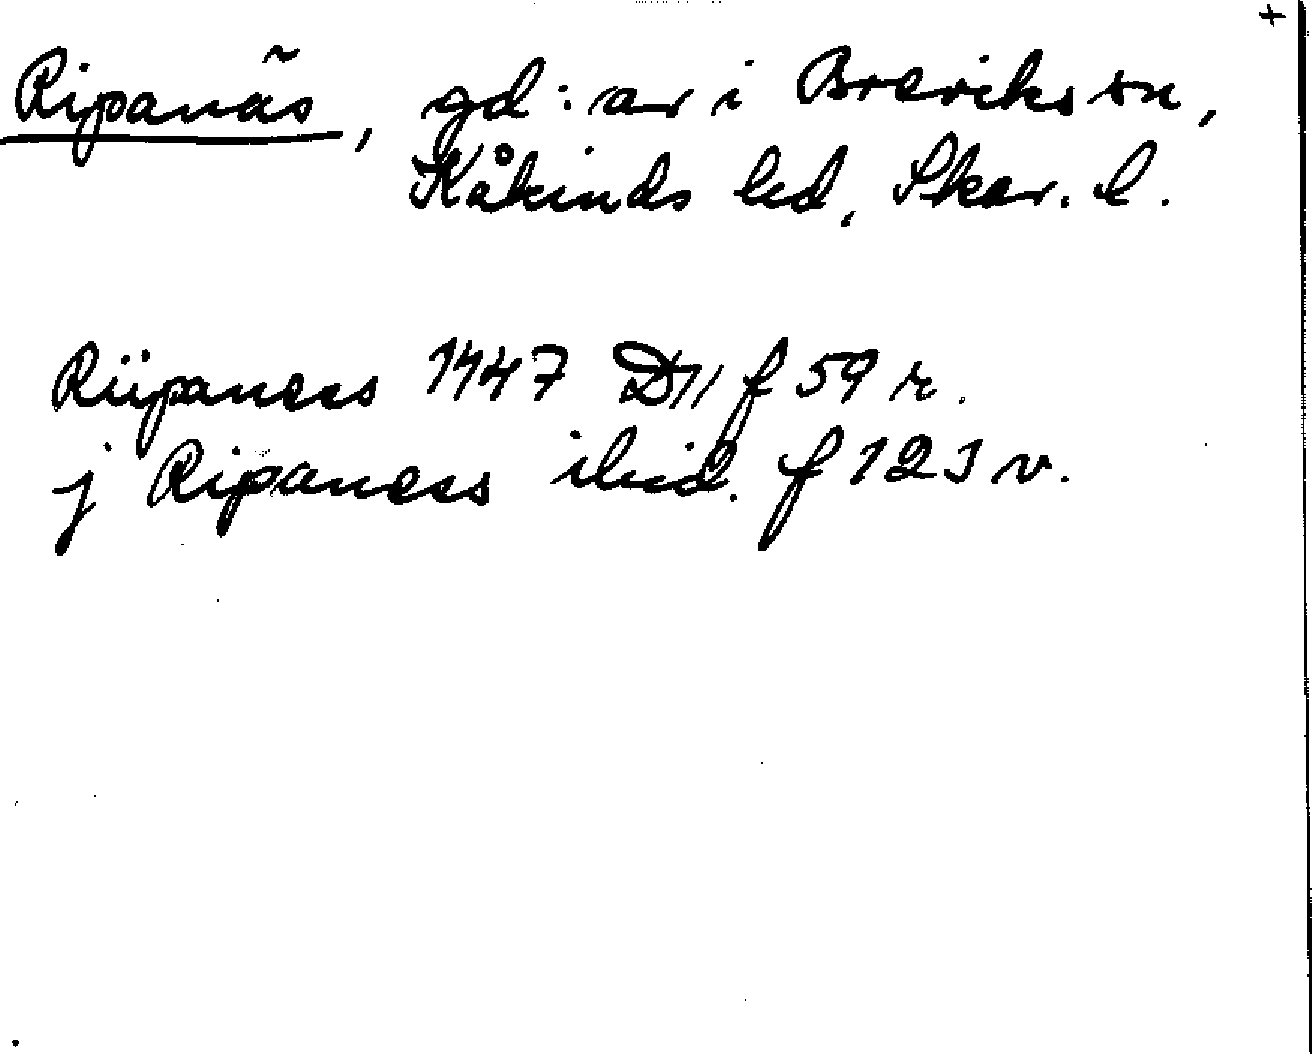 +
Ripanäs, gd:ar i Breviks sn,
Kåkinds hd, Skar. l.
Riipaness 1447 D11 f 59 r.
j Ripaness ibid. f 123 v.